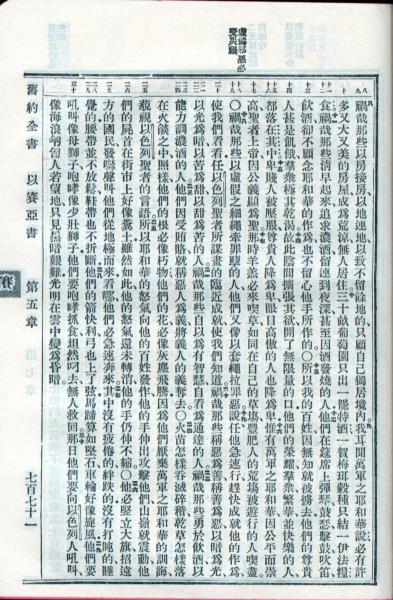 禍哉那些以房接房以地連地以致不留餘地的只顧自己獨居境內我耳聞萬軍之耶和華說必有許
多又大又美的房屋成為荒涼無人居住三十畝葡萄園只出一罷特酒一賀梅珥穀種只結一伊法糧
食禍哉那些清早起來追求濃酒留連到夜深甚至因酒發燒的人他們在筵席上彈琴鼓瑟擊鼓吹笛
飲酒卻不顧念耶和華的作為也不留心他手所作的○所以我的百姓因無知就被擄去他們的尊貴
人甚是飢餓羣眾極其乾渴故此陰間擴張其欲開了無限量的口他們的榮耀羣眾繁華並快樂的人
都落在其中卑賤人被壓服尊貴人降為卑眼目高傲的人也降為卑惟有萬軍之耶和華因公平而崇
高聖者上帝因公義顯為聖那時羊羔必來喫草如同在自己的草場豐肥人的荒場被遊行的人喫盡
○禍哉那些以虛假之細繩牽罪孽的人他們又像以套繩拉罪惡說任他急速行趕快成就他的作為
使我們看看任以色列聖者所謀畫的臨近成就使我們知道禍哉那些稱惡為善稱善為惡以暗為光
以光為暗以苦為甜以甜為苦的人禍哉那些自以為有智慧自看為通達的人禍哉那些勇於飲酒以
能力調濃酒的人他們因受賄賂就稱惡人為義將義人的義奪去○火苗怎樣吞滅碎稭乾草怎樣落
在火燄之中照樣他們的根必像朽物他們的花必像灰塵飛騰因為他們厭棄萬軍之耶和華的訓誨
藐視以色列聖者的言語所以耶和華的怒氣向他的百姓發作他的手伸出攻擊他們山嶺就震動他
們的屍首在街市上好像糞土雖然如此他的怒氣還未轉消他的手仍伸不縮他必豎立大旗招遠
方的國民發嘶聲叫他們從地極而來看哪他們必急速奔來其中沒有疲倦的絆跌的沒有打盹的睡
覺的腰帶並不放鬆鞋帶也不折斷他們的箭快利弓也上了弦馬蹄算如堅石車輪好像旋風他們要
吼叫像母獅子咆哮像少壯獅子他們要咆哮抓食坦然叼去無人救回那日他們要向以色列人吼叫
像海浪匉訇人若望地只見黑暗艱難光明在雲中變為昏暗
舊約全書 以賽亞書 第五章 七百七十一